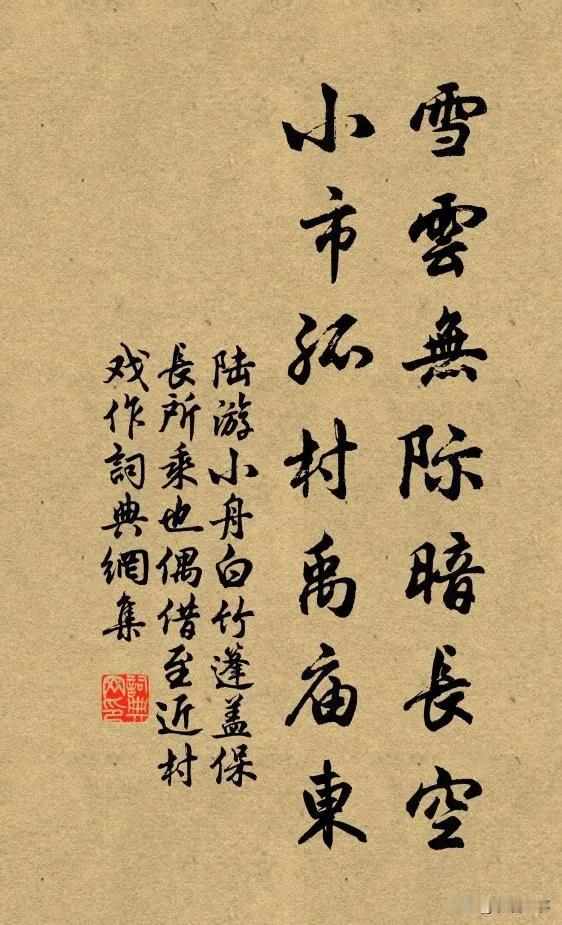 雪雲無际暗長空
小市孤村禹庙東
陆游小舟白竹篷盖保
長所乘也偶借至近村
戏作詞典網集